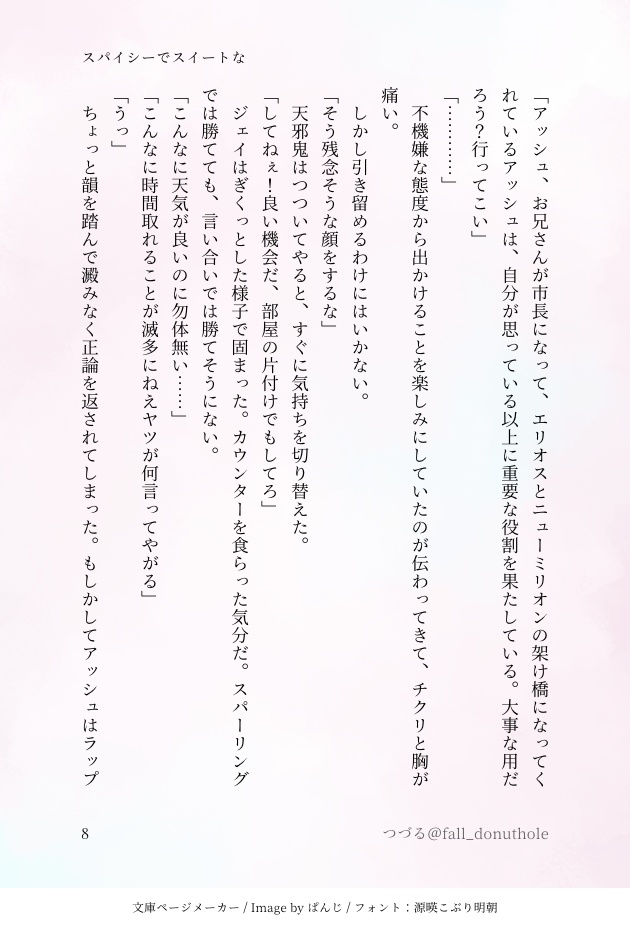 スパイシーでスイートな
「アッシュ、お兄さんが市長になって、エリオスとニューミリオンの架け橋になってく
れているアッシュは、自分が思っている以上に重要な役割を果たしている。大事な用だ
ろう？行ってこい」
「…………」
不機嫌な態度から出かけることを楽しみにしていたのが伝わってきて、チクリと胸が
痛い。
しかし引き留めるわけにはいかない。
「そう残念そうな顔をするな」
天邪鬼はつついてやると、すぐに気持ちを切り替えた。
「してねぇ！良い機会だ、部屋の片付けでもしてろ」
ジェイはぎくっとした様子で固まった。カウンターを食らった気分だ。スパーリング
では勝てても、言い合いでは勝てそうにない。
「こんなに天気が良いのに勿体無い……」
「こんなに時間取れることが滅多にねえヤツが何言ってやがる」
「うっ」
ちょっと韻を踏んで澱みなく正論を返されてしまった。もしかしてアッシュはラップ
8
つづる@fall_donuthole
文庫ページメーカー / Image by ぱんじ / フォント：源暎こぶり明朝